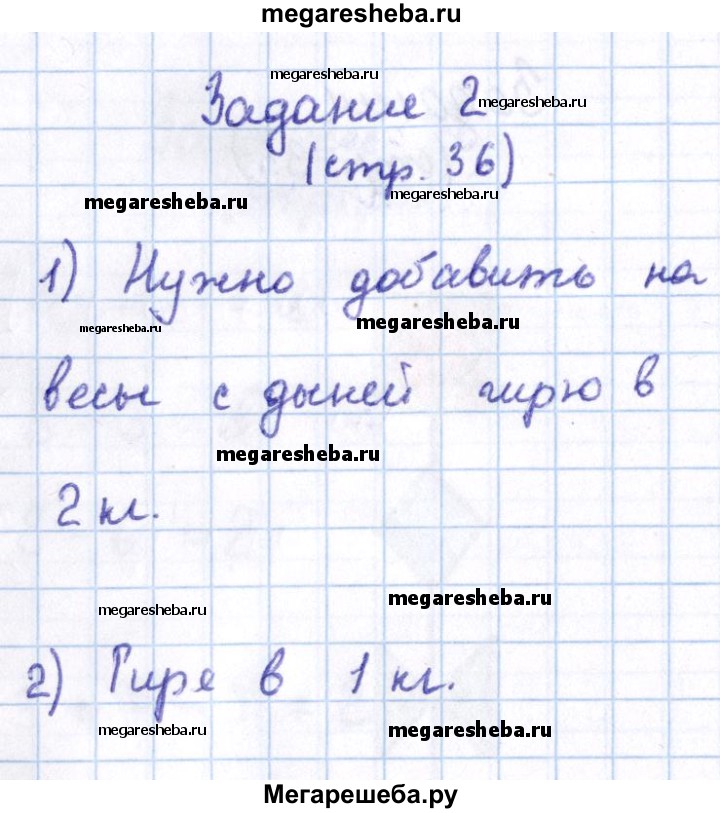 megaresheba.ru
megaresheba.ru
Задание 2 megaresheba.ru
(стр. 36)
megaresheba.ru megaresheba.ru
1) Нужно добавить на
megaresheba.ru megaresheba.ru
весы с дыней гирю в
megaresheba.ru
2 кг.
megaresheba.ru megaresheba.ru
2) Гире в 1 кг.
megaresheba.ru megaresheba.ru
Мегарешеба.ру